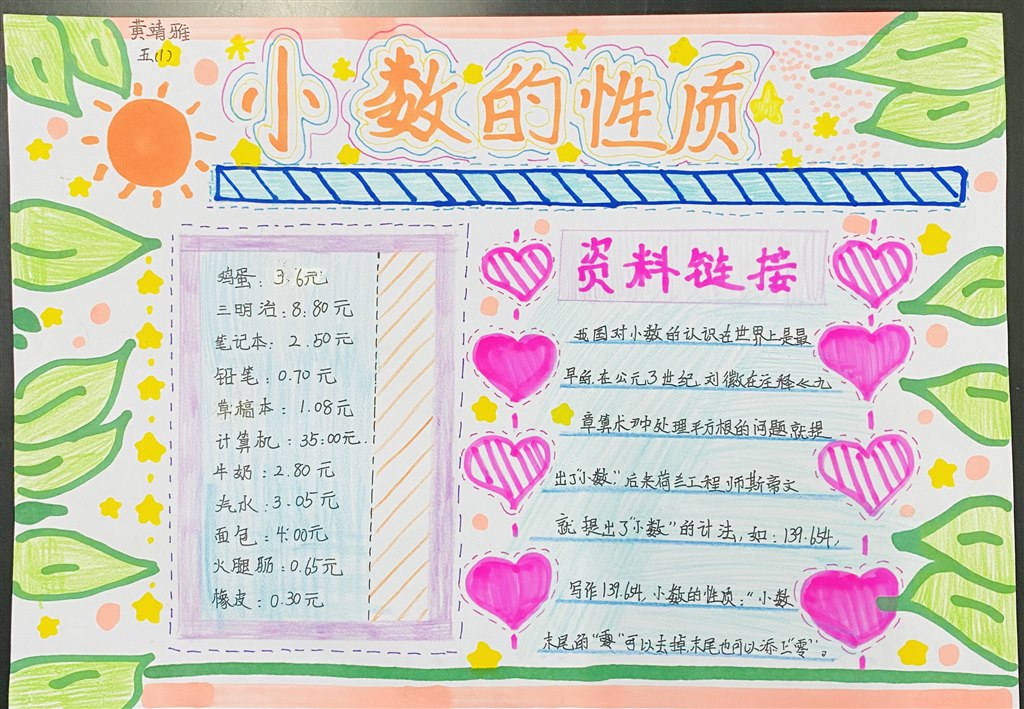 黄靖雅
五(1)
小数的性质
鸡蛋：3.6元
三明治：8.80元
笔记本：2.50元
铅笔：0.70元
草稿本：1.08元
计算机：35.00元
牛奶：2.80元
汽水：3.05元
面包：4.00元
火腿肠：0.65元
橡皮：0.30元
资料链接
我国对小数的认识在世界上是最
早的，在公元3世纪，刘徽在注释《九
章算术》中处理平方根的问题就提
出了“小数”。后来荷兰工程师斯蒂文
就提出了“小数”的计法，如：139.654，
写作139.654，小数的性质：“小数
末尾的“零”可以去掉，末尾也可以添上“零”。